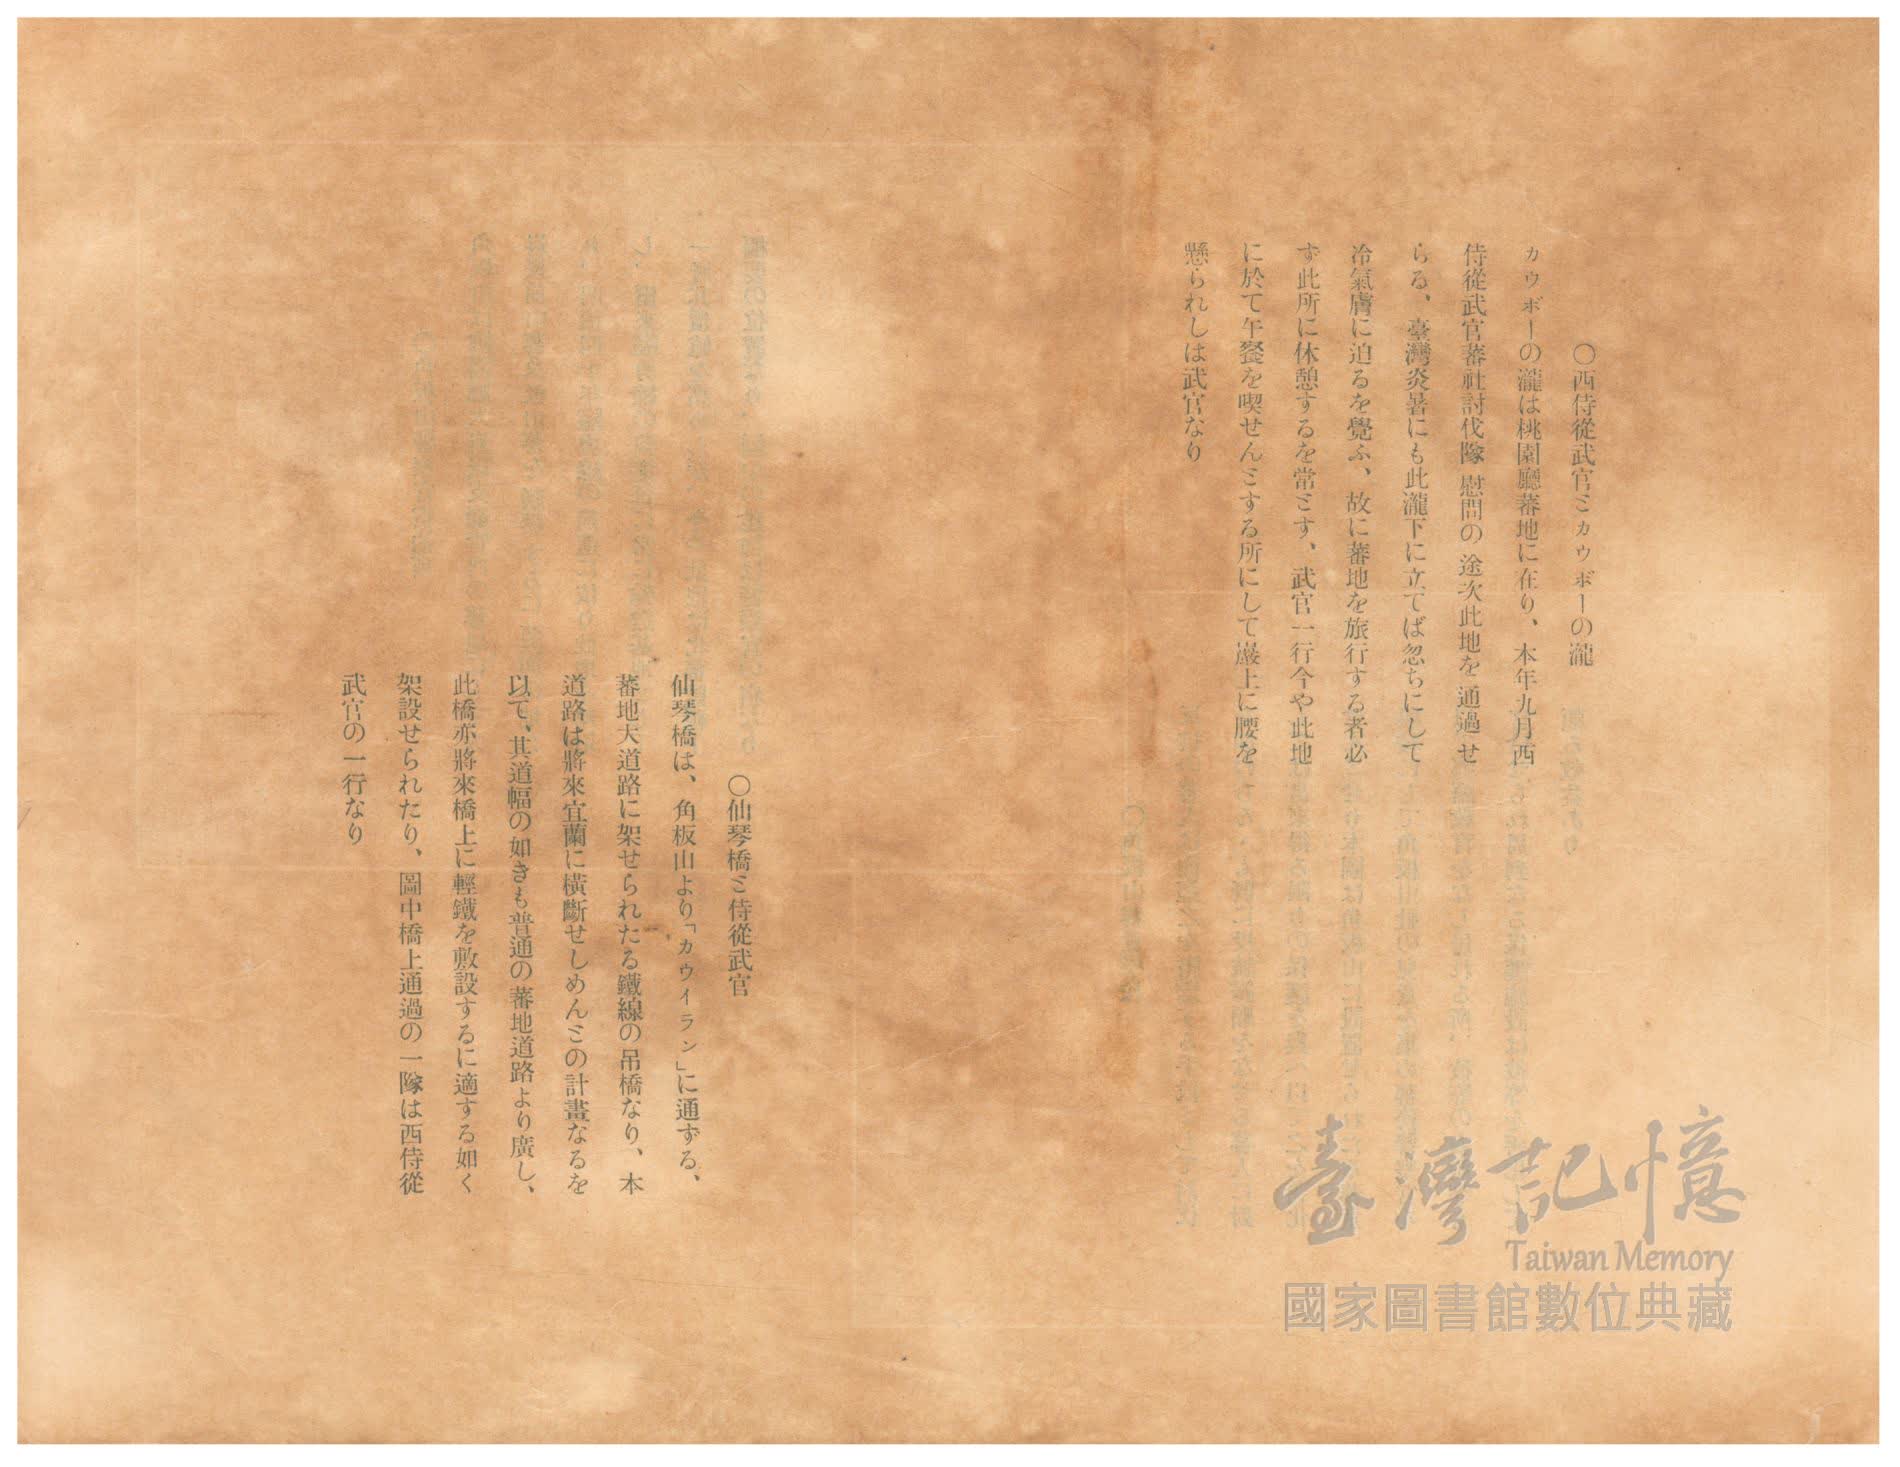 〇西侍從武官ミカウボーの瀧
カウボーの瀧は桃園廳蕃地に在り、本年九月西
侍從武官蕃社討伐隊慰問の途次此地を通過せ
らる、臺灣炎暑にも此瀧下に立てば忽ちにして
冷氣膚に迫るを覺ふ、故に蕃地を旅行する者必
ず此所に休憩するを常ミす、武官一行今や此地
に於て午餐を喫せんミする所にして巖上に腰を
懸られしは武官なり
〇仙琴橋ミ侍從武官
仙琴橋は、角板山より「カウイラン」に通ずる、
蕃地大道路に架せられたる鐵線の吊橋なり、本
道路は將來宜蘭に横斷せしめんミの計畫なるを
以て、其道幅の如きも普通の蕃地道路より廣し、
此橋亦將來橋上に輕鐵を敷設するに適する如く
架設せられたり、圖中橋上通過の一隊は西侍從
武官の一行なり
臺灣記憶
Taiwan Memory
國家圖書館數位典藏